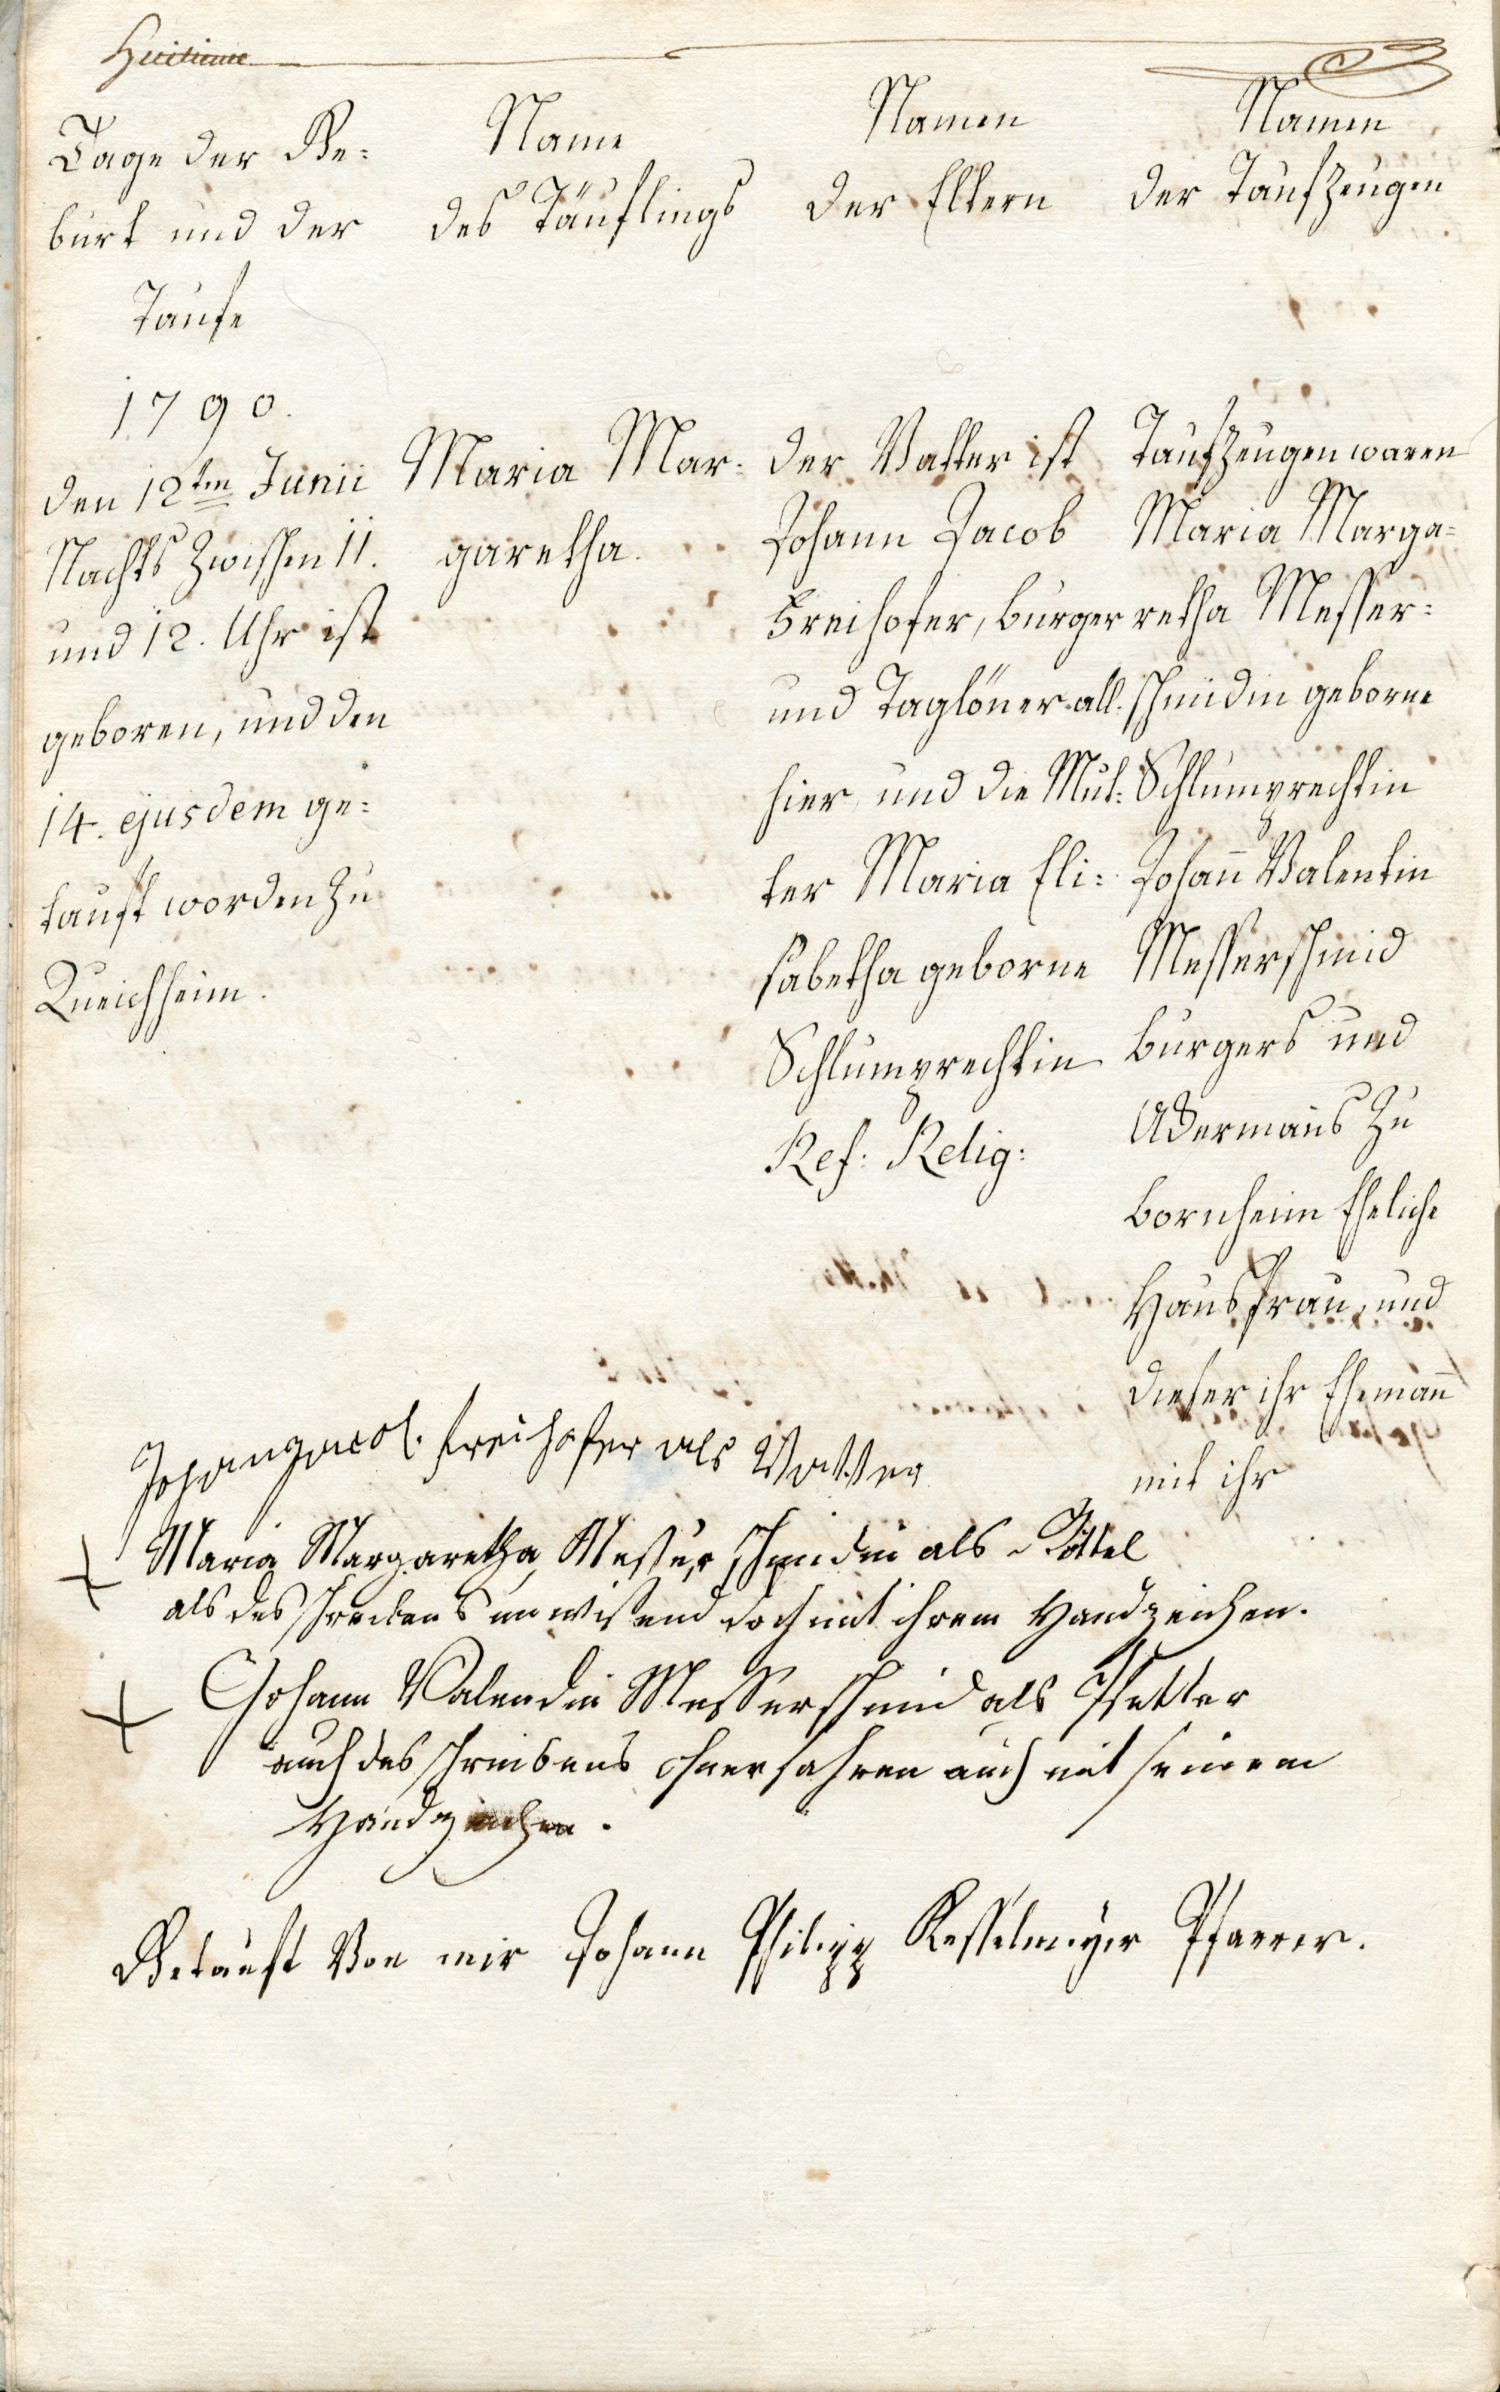 Huitieme
Tage der Ge=
burt und der
Taufe
Name
des Täuflings
Namen
der Eltern
Namen
der Taufzeugen
1790.
den 12ten Junii
Nachts zwischen 11.
und 12. Uhr ist
geboren, und den
14. ejusdem ge=
tauft worden zu
Queichheim.
Maria Mar=
garetha.
der Vatter ist
Johann Jacob
Freihofer, burger
und Taglöner all=
hier, und die Mut=
ter Maria Eli=
sabetha geborne
Schlumprechtin
Ref: Relig:
Taufzeugen waren
Maria Marga=
retha Messer=
schmidin geborne
Schlumprechtin
Johan̄ Valentin
Messerschmid
burgers und
Ackerman̄s zu
bornheim Eheliche
Hausfrau, und
dieser ihr Eheman̄
mit ihr
Johan Jacob freihofer als Vatter
Maria Margaretha Messerschmidin als Göttel
als des schreibens unwißend doch mit ihrem Handzeichen.
Johann Valendin Messerschmid als Pfetter
auch des schreibens ohnerfahren auch mit seinem
Handzeichen.
Getauft Von mir Johann Philipp Kesselmeyer Pfarrer.